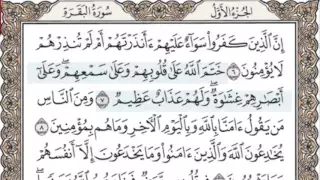 الجزء الأول سورة البقرة
إِنَّ ٱلَّذِينَ كَفَرُوا۟ سَوَآءٌ عَلَيْهِمْ ءَأَنذَرْتَهُمْ أَمْ لَمْ تُنذِرْهُمْ
لَا يُؤْمِنُونَ ٦ خَتَمَ ٱللَّهُ عَلَىٰ قُلُوبِهِمْ وَعَلَىٰ سَمْعِهِمْ ۖ وَعَلَىٰٓ
أَبْصَٰرِهِمْ غِشَٰوَةٌ ۖ وَلَهُمْ عَذَابٌ عَظِيمٌ ٧ وَمِنَ ٱلنَّاسِ
مَن يَقُولُ ءَامَنَّا بِٱللَّهِ وَبِٱلْيَوْمِ ٱلْـَٔاخِرِ وَمَا هُم بِمُؤْمِنِينَ ٨
يُخَٰدِعُونَ ٱللَّهَ وَٱلَّذِينَ ءَامَنُوا۟ وَمَا يَخْدَعُونَ إِلَّآ أَنفُسَهُمْ